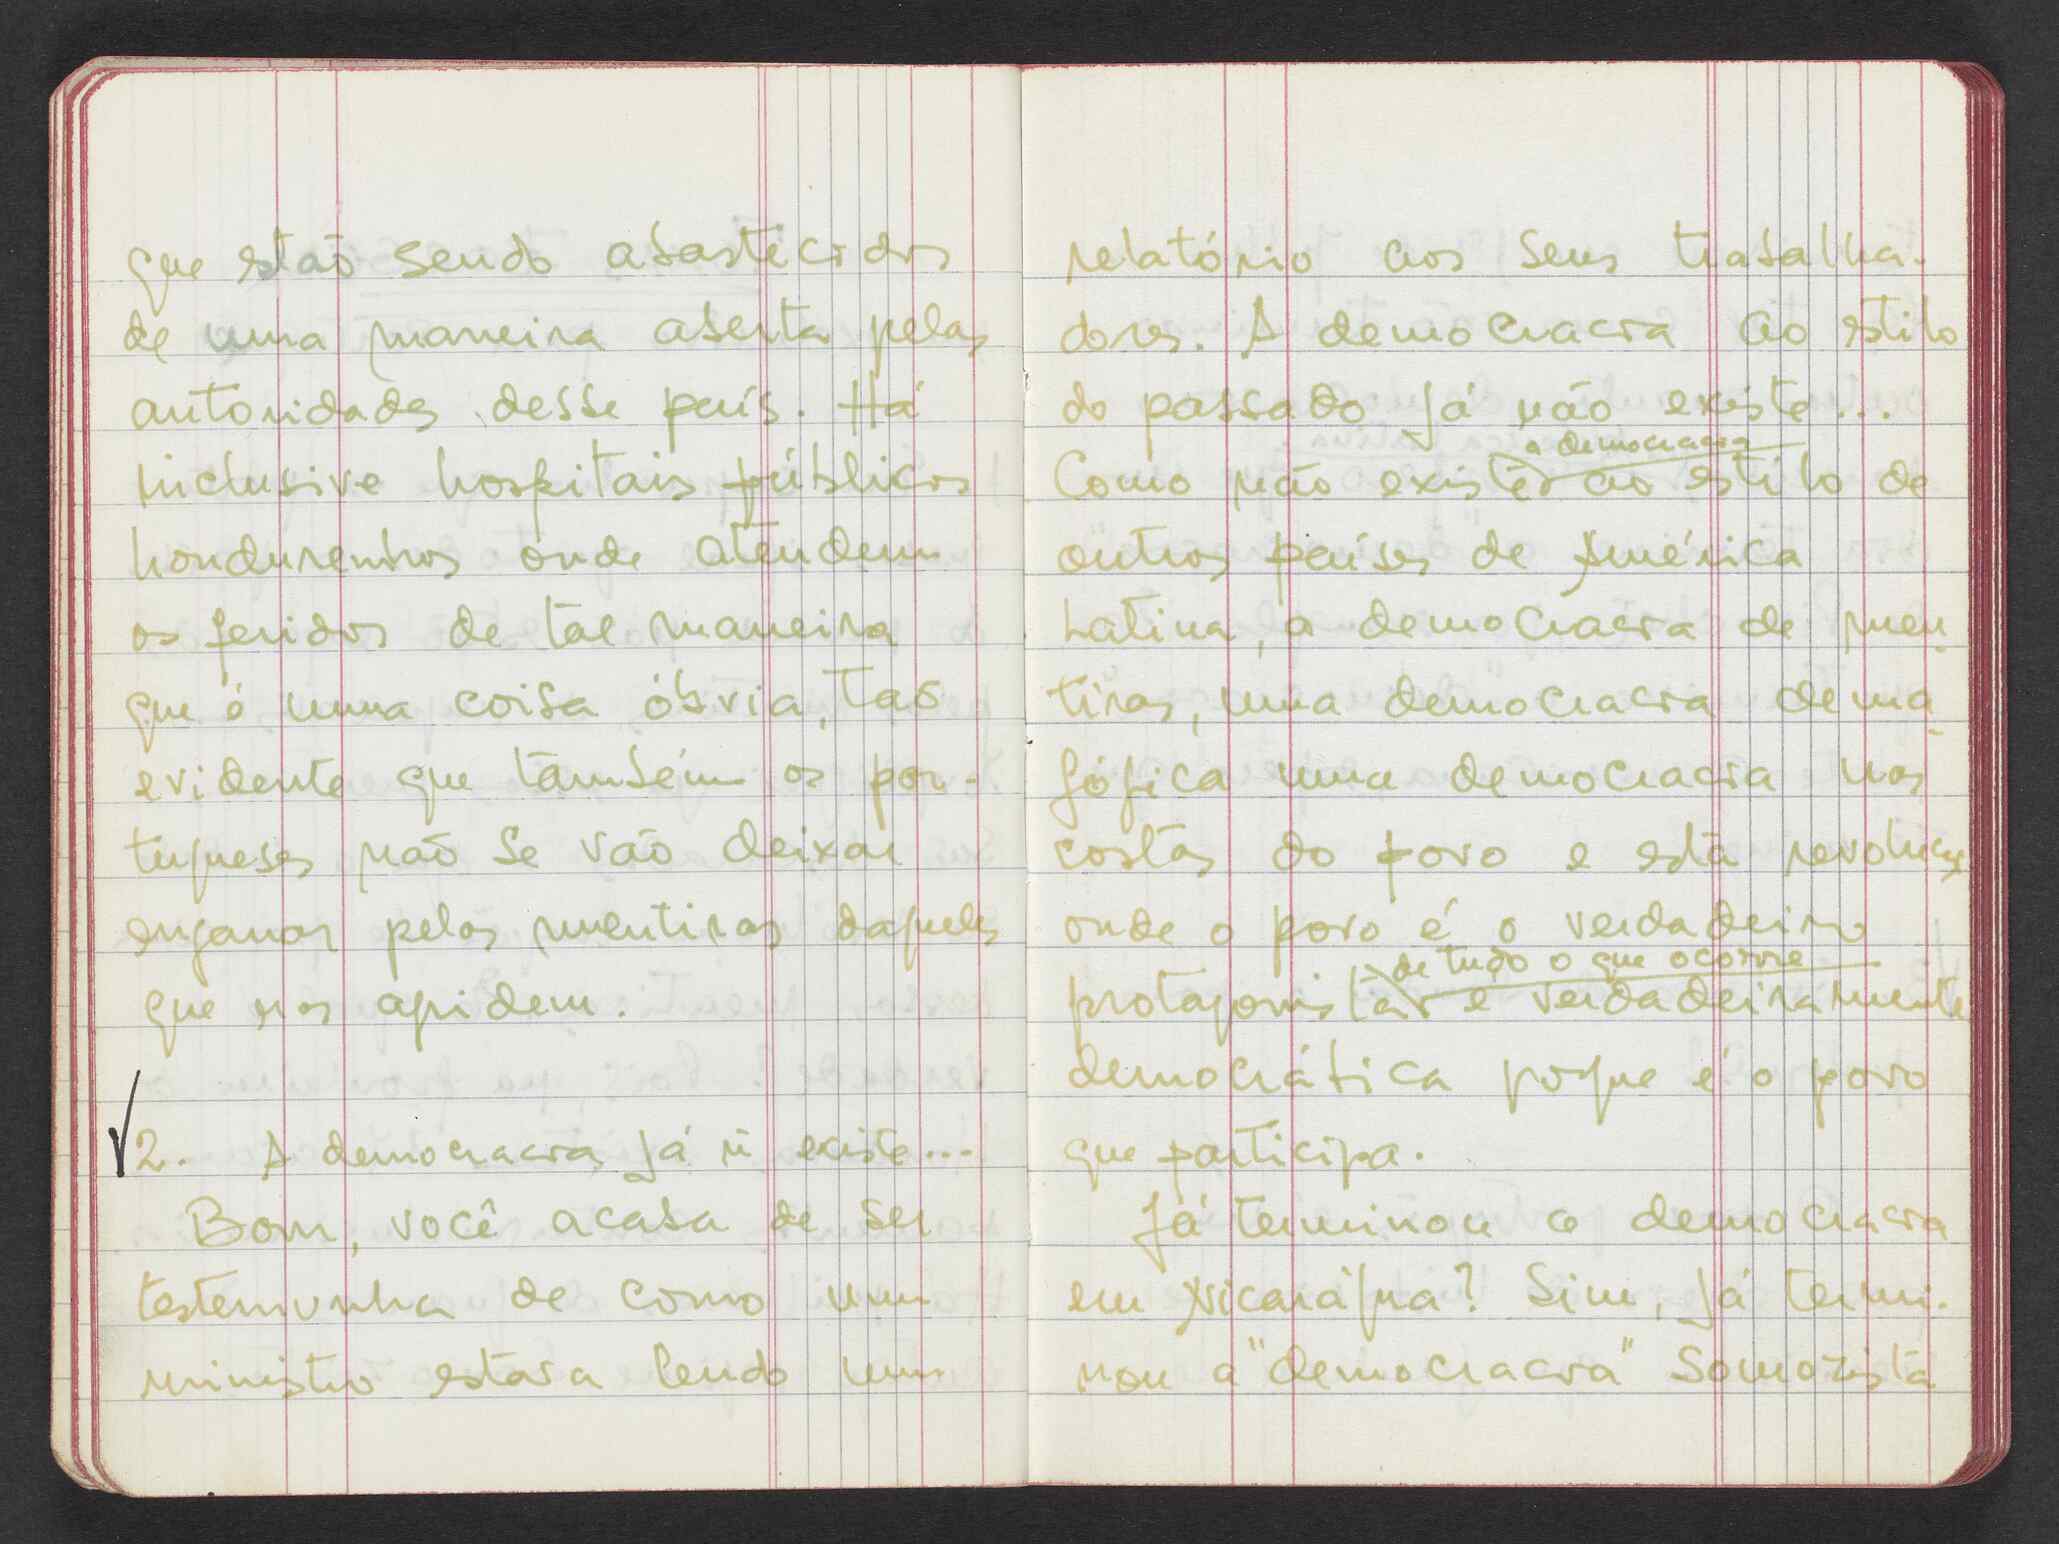 que estão sendo abastecidos
de uma maneira aberta pelas
autoridades desse país. Há
inclusive hospitais públicos
hondurenhos onde atendem
os feridos de tal maneira
que é uma coisa óbvia, tão
evidente que também os por-
tugueses não se vão deixar
enganar pelas mentiras daqueles
que nos agridem.
2. A democracia já ñ existe...
Bom, você acaba de ser
testemunha de como um
ministro estava lendo um
relatório aos seus trabalha-
dores. A democracia ao estilo
do passado já não existe...
a democracia
Como não existe ao estilo de
outros países de América
Latina, a democracia de men-
tiras, uma democracia dema-
gógica uma democracia nas
costas do povo e esta revolução
onde o povo é o verdadeiro
de tudo o que ocorre
protagonista é verdadeiramente
democrática poque é o povo
que participa.
Já terminou a democracia
em Nicarágua? Sim, já termi-
nou a "democracia" somozista